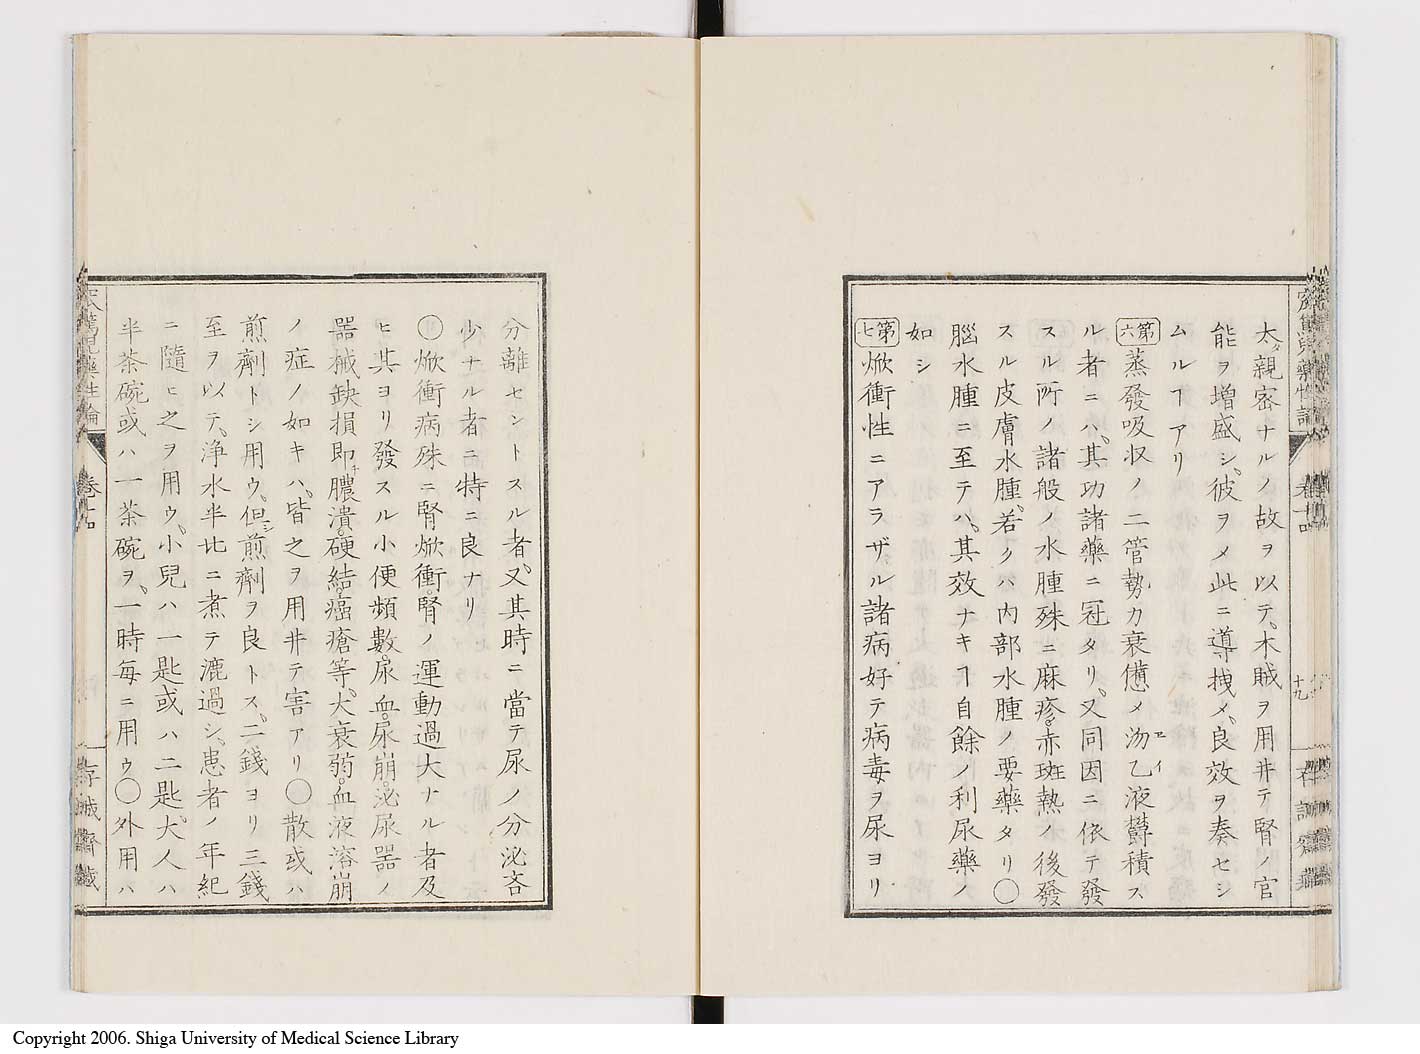 太タ親密ナルノ故ヲ以テ、木賊ヲ用井テ腎ノ官
能ヲ増盛シ、彼ヲメ此ニ導拽メ、良效ヲ奏セシ
ムルヿアリ
第六 蒸發吸収ノ二管勢力衰憊メ沕乙液欝積ス
ル者ニハ、其功諸藥ニ冠タリ、又同因ニ依テ發
スル所ノ諸般ノ水腫殊ニ麻疹。赤斑熱ノ後發
スル皮膚水腫、若クハ内部水腫ノ要藥タリ〇
腦水腫ニ至テハ、其效ナキヿ自餘ノ利尿藥ノ
如シ
第七 焮衝性ニアラザル諸病好テ病毒ヲ尿ヨリ
分離セントスル者、又其時ニ當テ尿ノ分泌吝
少ナル者ニ特ニ良ナリ
〇焮衝病殊ニ腎焮衝。腎ノ運動過大ナル者及
ヒ其ヨリ發スル小便頻數。尿血。尿崩。泌尿噐ノ
噐械缺損即チ膿潰。硬結。癌瘡等、大衰弱。血液溶崩
ノ症ノ如キハ、皆之ヲ用井テ害アリ〇散或ハ
煎劑トシ用ウ、但シ煎劑ヲ良トス、二錢ヨリ三錢
至ヲ以テ、浄水半比ニ煮テ漉過シ、患者ノ年紀
ニ隨ヒ之ヲ用ウ、小兒ハ一匙或ハ二匙、大人ハ
半茶碗或ハ一茶碗ヲ、一時毎ニ用ウ〇外用ハ
卷十四
十九